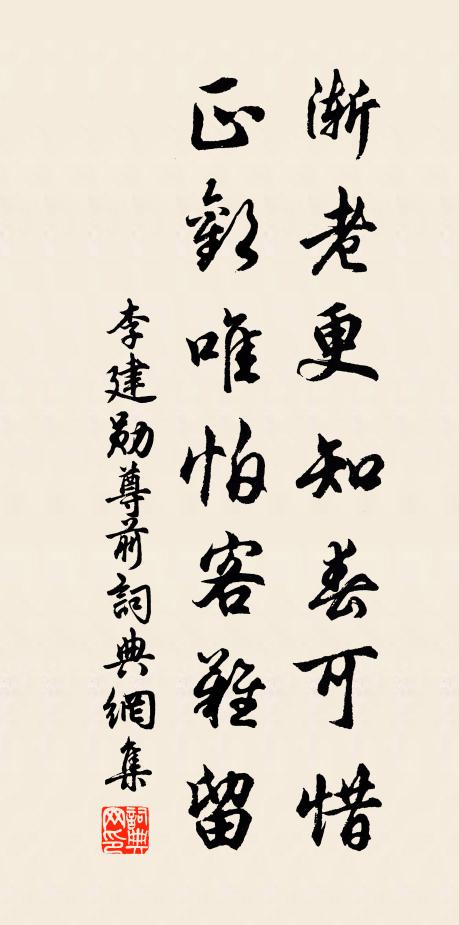 漸老更知春可惜
正歡唯怕客難留
李建勛尊前詞典網集
詞典網印